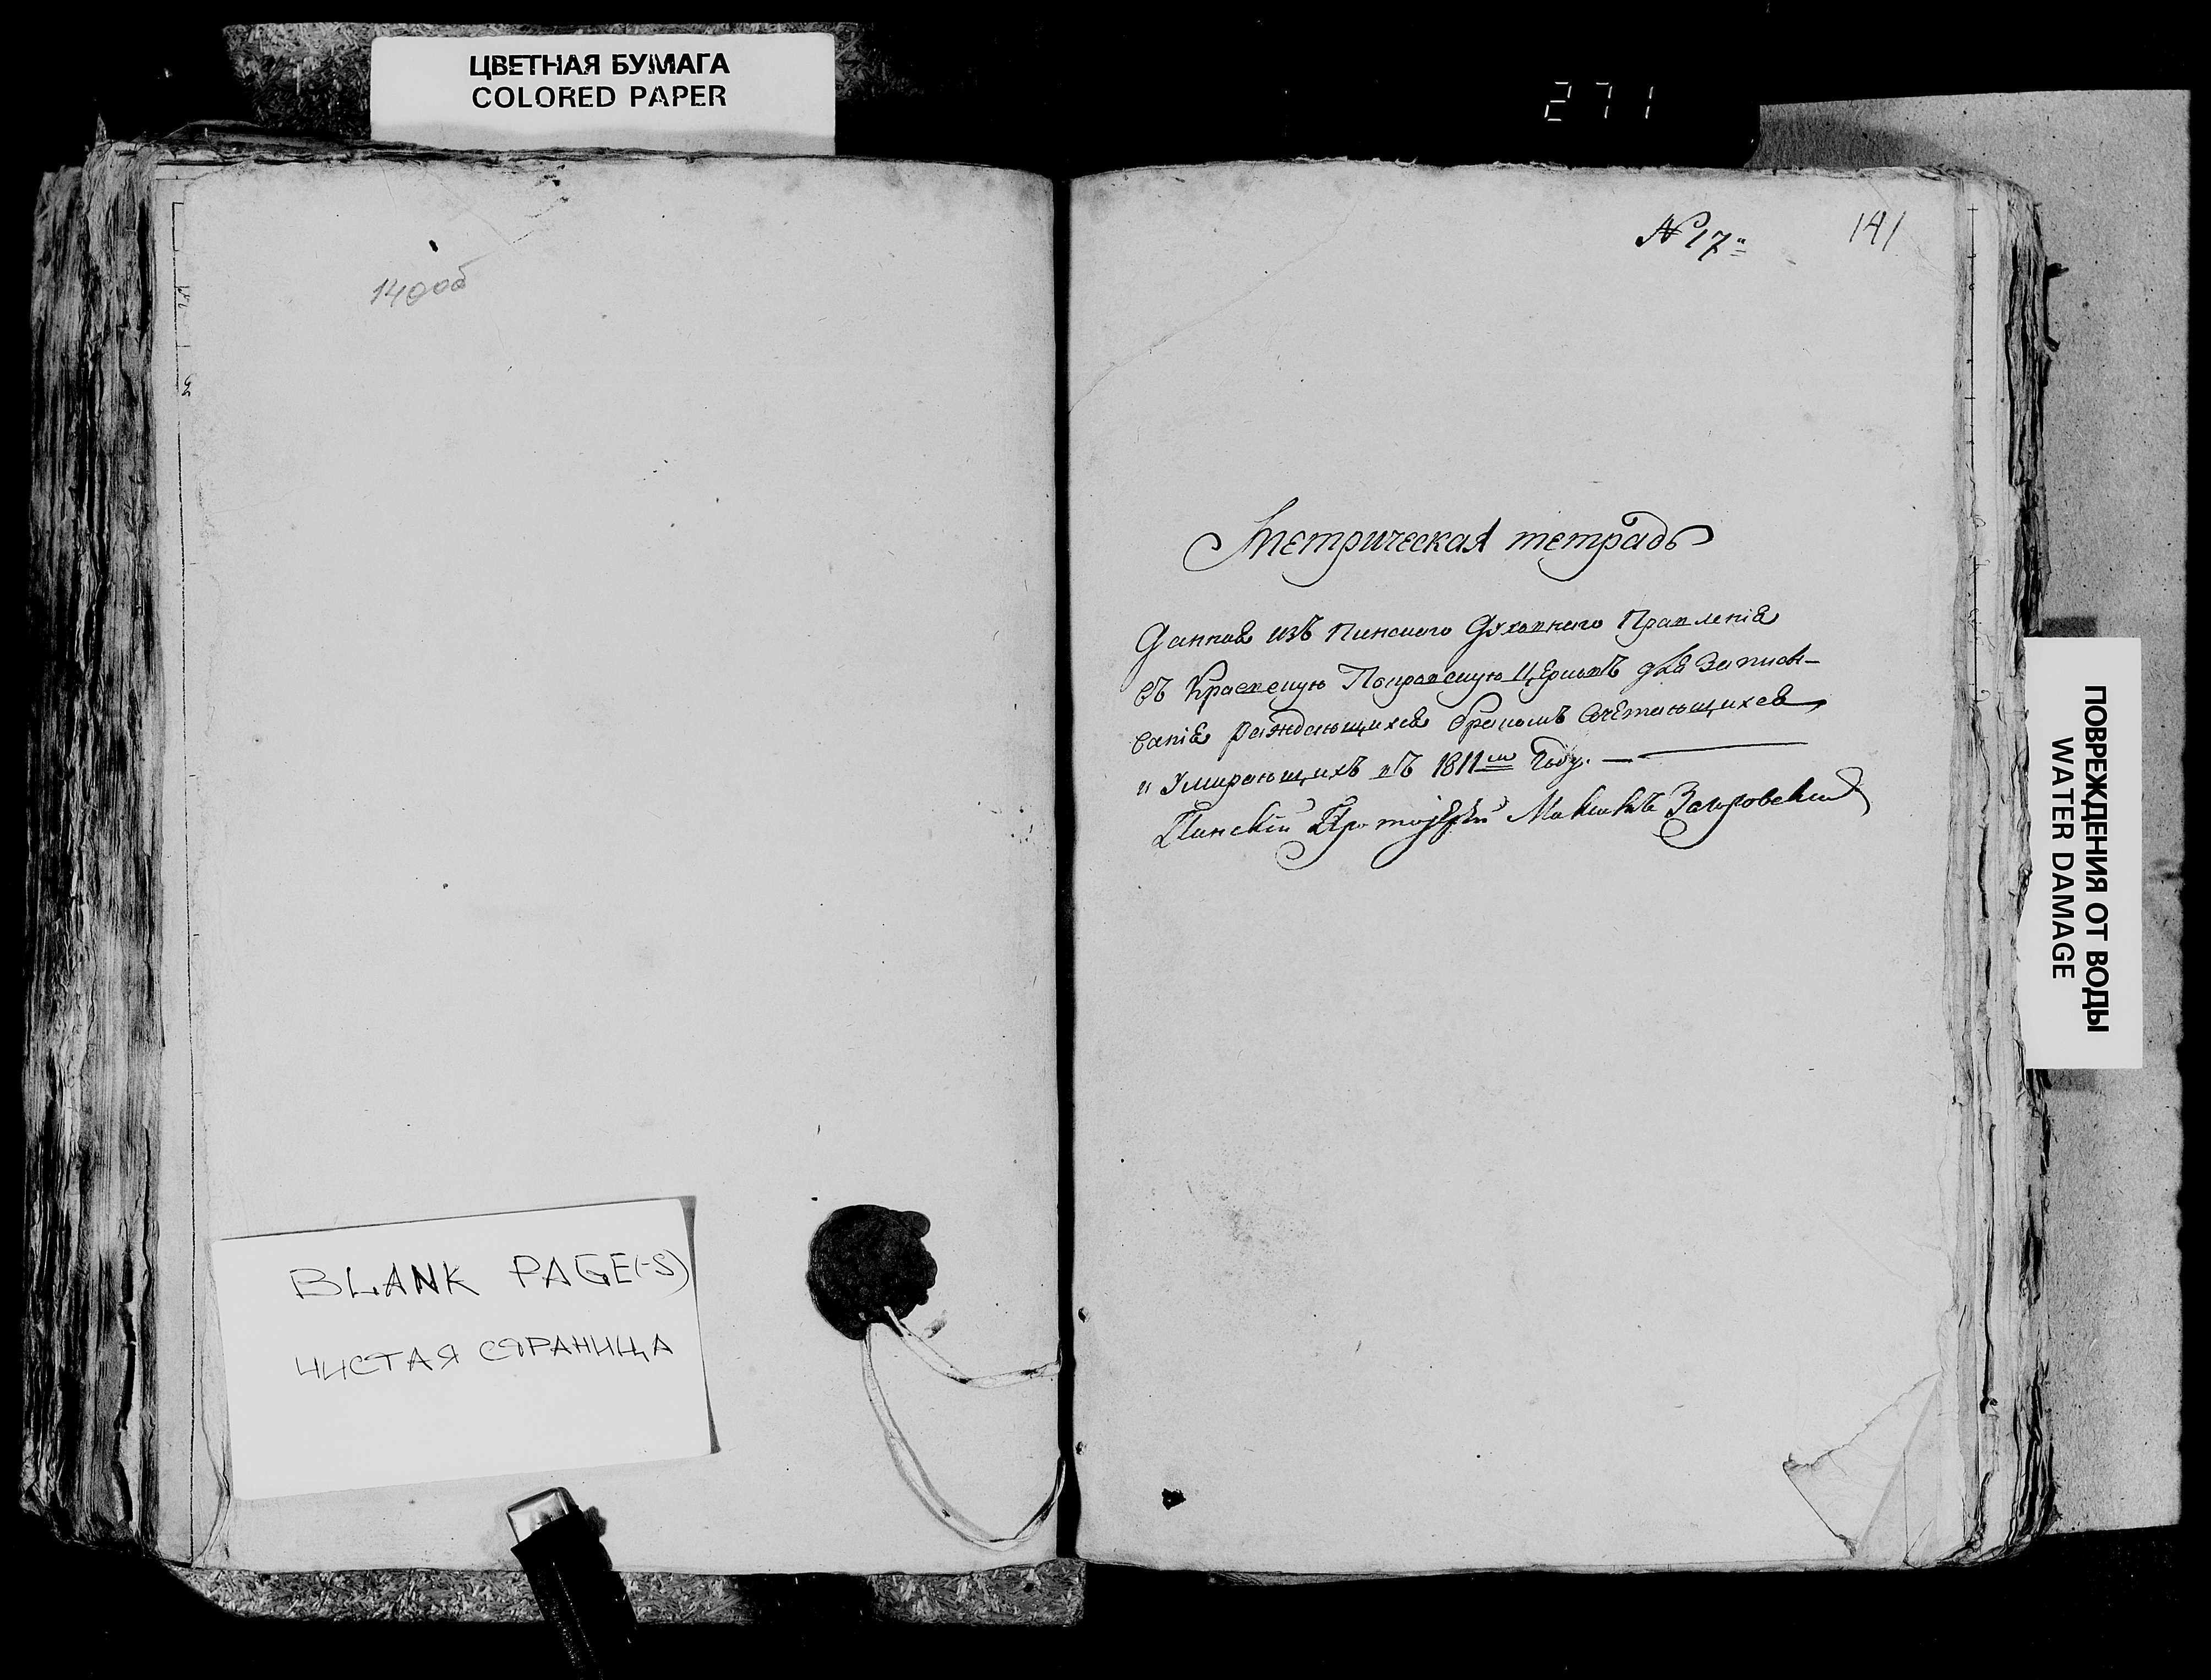 ЦВЕТНАЯ БУМАГА
COLORED PAPER
271
140об
BLANK PAGE(-S)
ЧИСТАЯ СТРАНИЦА
№ 17
141
Метрическая тетрадь
Данная изъ Пинскаго Духовнаго Правленія
въ Покровскую Церковь для Записы-
ванія раждающихся бракомъ Сочетающихся,
и Умирающихъ въ 1811м Году.
Пинскій Протоіерей
ПОВРЕЖДЕНИЯ ОТ ВОДЫ
WATER DAMAGE